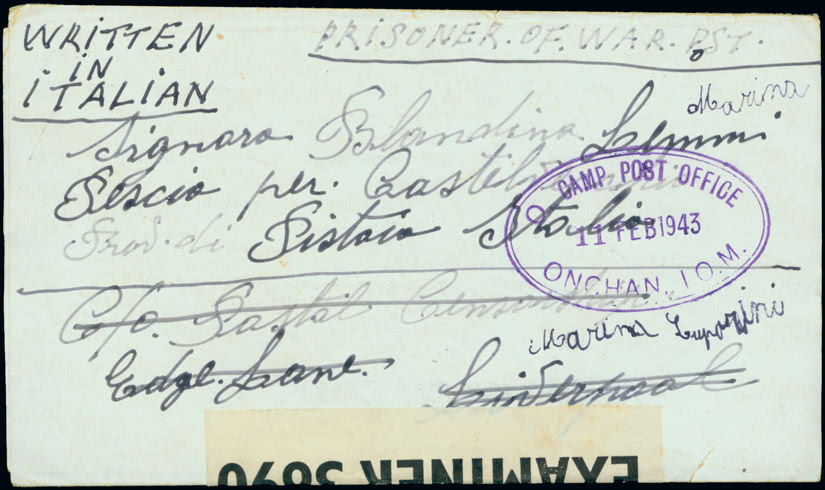 WRITTEN
IN
ITALIAN
PRISONER.OF.WAR.PST.
o
Marina
Signora Blandina Lemmi
Pescia per. Castel
Prov. di Pistoia Italia
CAMP POST OFFICE
11 FEB 1943
ONCHAN, I.O.M.
C/o. Postal Censorship
Marina
Edge. Lane. Liverpool
EXAMINER 3690